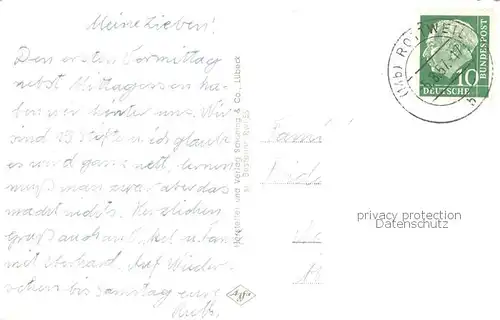 Meine Lieben!
Den ersten Vormittag
nebst Mittagessen ha-
ben wir hinter uns. Wir
sind 13 Stck. u. ich glaube
es wird ganz nett, lernen
muß man zwar aber das
macht nichts. Herzlichen
Gruß auch an
mit Eberhard. Auf Wieder-
sehen bis Samstag eure
Ruth.
Hersteller und Verlag Schöning & Co., Lübeck
Agfa
(14b) ROTTWEIL
10
DEUTSCHE
BUNDESPOST
Fami
privacy protection
Datenschutz